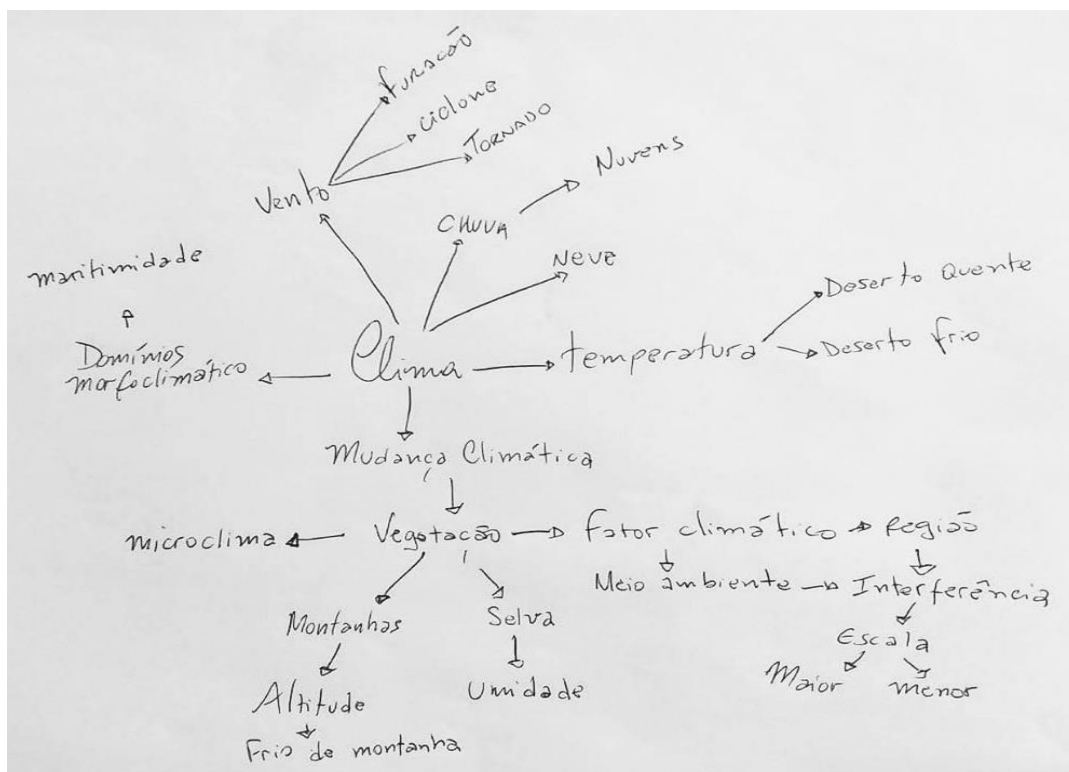 furacão
ciclone
TORNADO
Vento
Nuvens
CHUVA
NEVE
maritimidade
Deserto Quente
Domínios
morfoclimático
Clima
temperatura
Deserto frio
Mudança Climática
microclima
Vegetação
fator climático
Região
Meio ambiente
Interferência
Montanhas
Selva
Escala
Altitude
Umidade
Maior
menor
Frio de montanha